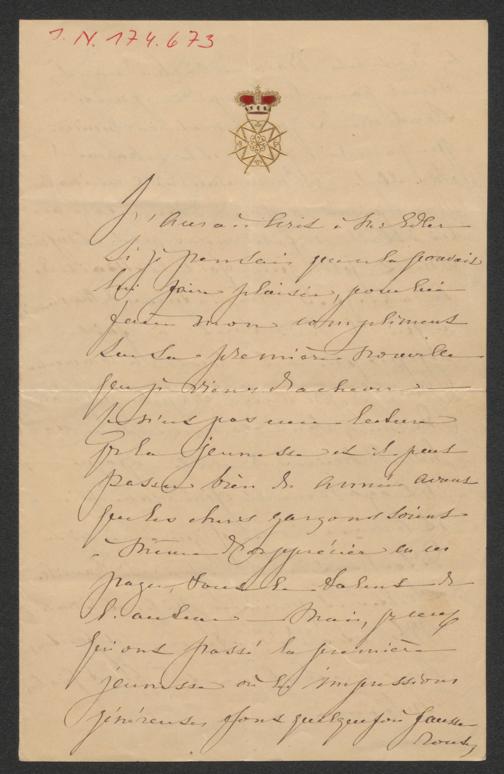 J.N. 174.673
J'aurais écrit à Mr Edler
si je pensais que cela pouvait
lui faire plaisir, pour lui
faire mon compliment
sur sa première nouvelle
que je viens d'achever —
Ce n'est pas une lecture
pr la jeunesse et il peut
passer bien des années avant
que les chers garçons soient
à même d'apprécier en ces
pages, tout le talent de
l'auteur — Mais, pr ceux
qui ont passé la première
jeunesse où les impressions
généreuses font quelquefois fausse
route,